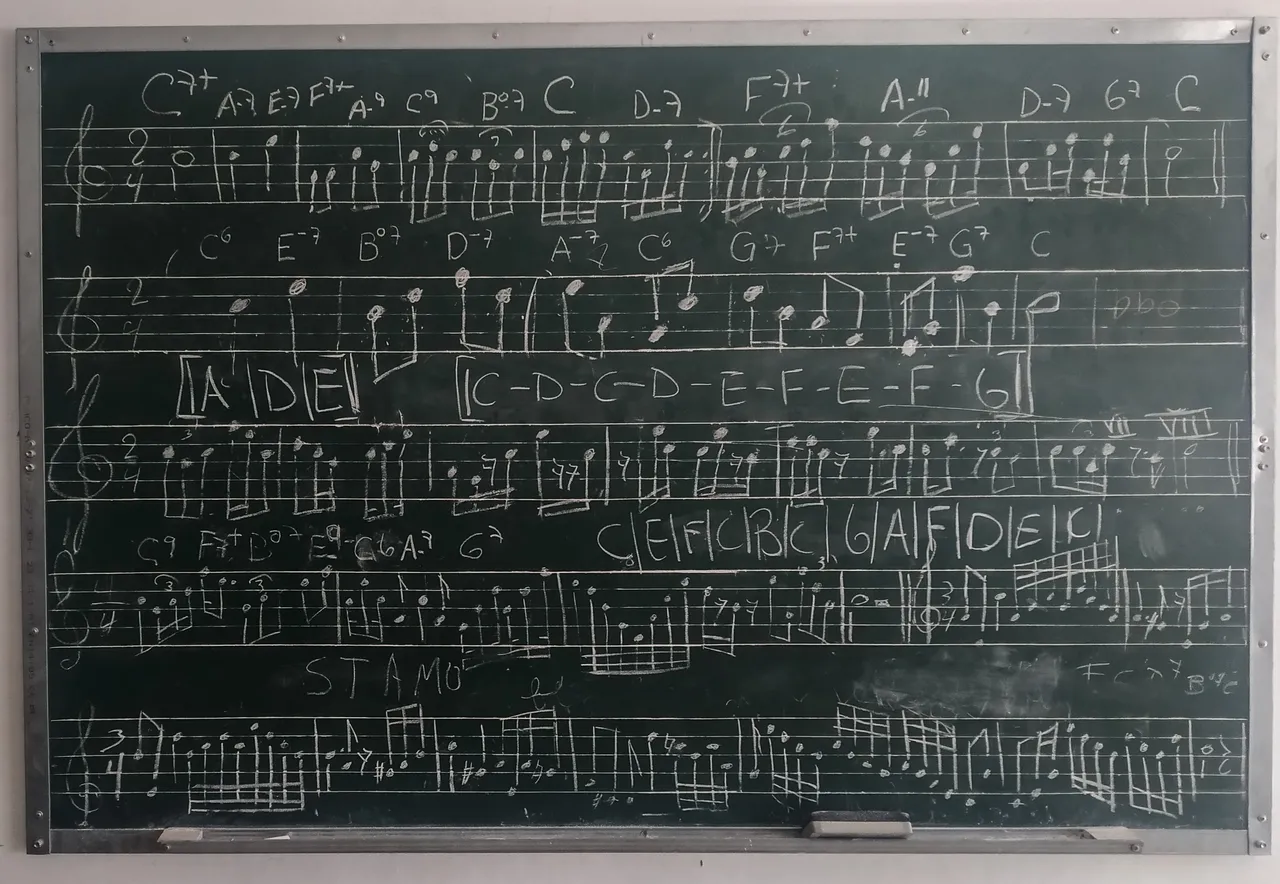 C7+ A-7 E-7 F7+ A-9 C9 Bo7 C D-7 F7+ A-11 D-7 G7 C
2 4
6 6
C6 E-7 Bo7 D-7 A-7 C6 G7 F7+ E-7 G7 C
2 4
[A|D|E] [C-D-C-D-E-F-E-F-G]
2 4 3 3 VII VIII
C9 F7+ G6 A-7 G7 C|E|F|C|B|C|G|A|F|D|E|C|
4 3 3 3 3 4
STAMO
3 4